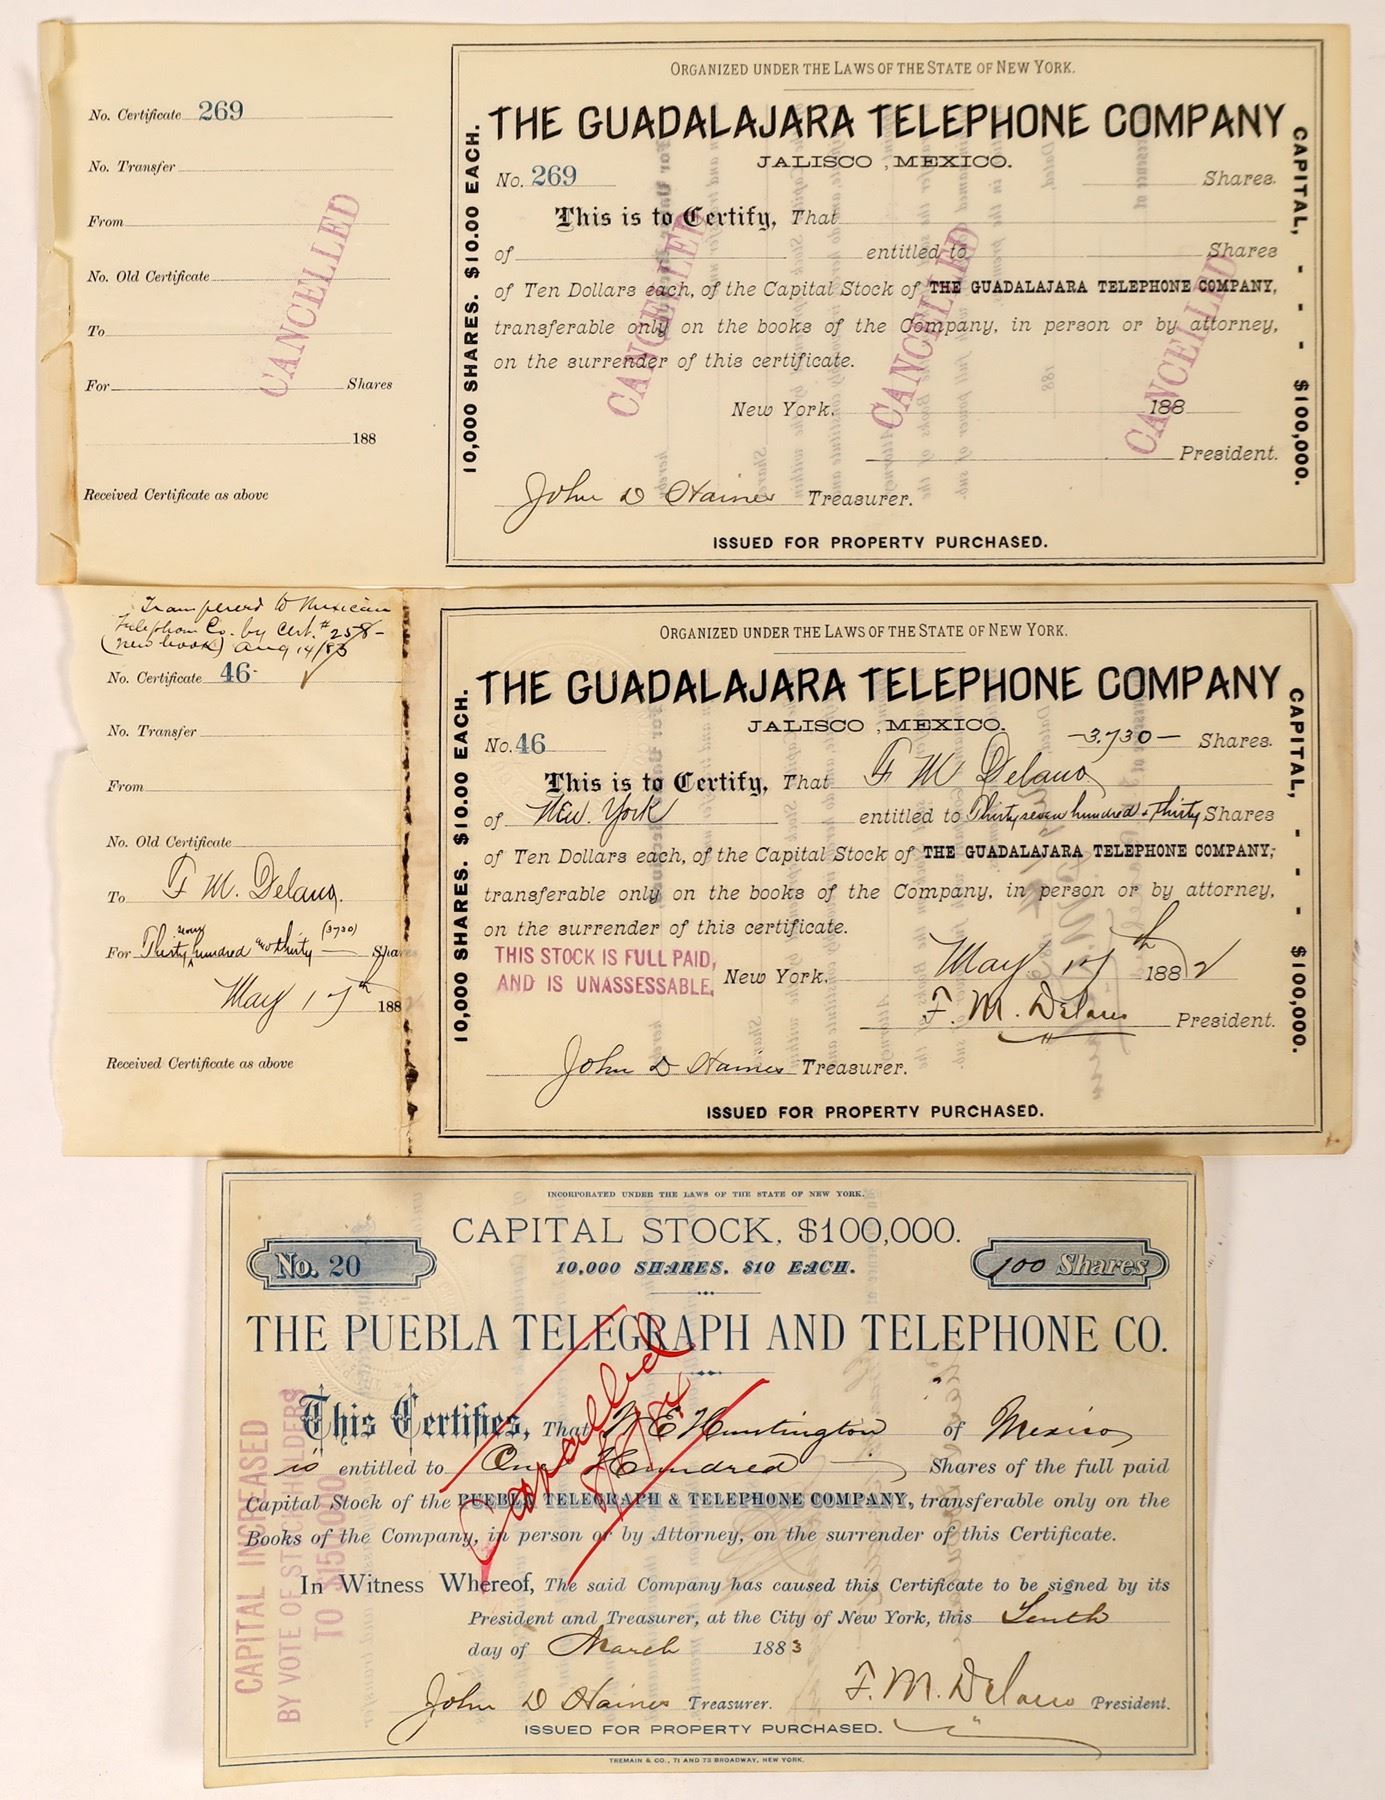 No. Certificate 269
No. Transfer
From
No. Old Certificate
To
For Shares
188
Received Certificate as above
CANCELLED
ORGANIZED UNDER THE LAWS OF THE STATE OF NEW YORK.
THE GUADALAJARA TELEPHONE COMPANY
JALISCO, MEXICO.
No. 269 Shares.
This is to Certify, That
of entitled to Shares
of Ten Dollars each, of the Capital Stock of THE GUADALAJARA TELEPHONE COMPANY,
transferable only on the books of the Company, in person or by attorney,
on the surrender of this certificate.
New York. 188
President.
John D Haines Treasurer.
ISSUED FOR PROPERTY PURCHASED.
10,000 SHARES. $10.00 EACH.
CAPITAL, - - - $100,000.
CANCELLED
CANCELLED
CANCELLED
Transfered to Mexican
Telephone Co. by Cert. # 258-
(new book) Aug 14/83
No. Certificate 46-
No. Transfer
From
No. Old Certificate
To F M. Delano.
For Thirty seven hundred and thirty (3730) Shares
May 17th 188
Received Certificate as above
ORGANIZED UNDER THE LAWS OF THE STATE OF NEW YORK.
THE GUADALAJARA TELEPHONE COMPANY
JALISCO, MEXICO.
No. 46 -3.730- Shares.
This is to Certify, That F M Delano
of New. York entitled to Thirty seven hundred & Thirty Shares
of Ten Dollars each, of the Capital Stock of THE GUADALAJARA TELEPHONE COMPANY,
transferable only on the books of the Company, in person or by attorney,
on the surrender of this certificate.
THIS STOCK IS FULL PAID,
AND IS UNASSESSABLE.
New York. May 17th 1882
F. M. Delano President.
John D Haines Treasurer.
ISSUED FOR PROPERTY PURCHASED.
10,000 SHARES. $10.00 EACH.
CAPITAL, - - - $100,000.
INCORPORATED UNDER THE LAWS OF THE STATE OF NEW YORK.
CAPITAL STOCK, $100,000.
No. 20 10,000 SHARES. $10 EACH. 100 Shares
THE PUEBLA TELEGRAPH AND TELEPHONE CO.
This Certifies, That W E Huntington of Mexico
is entitled to One Hundred Shares of the full paid
Capital Stock of the PUEBLA TELEGRAPH & TELEPHONE COMPANY, transferable only on the
Books of the Company, in person or by Attorney, on the surrender of this Certificate.
In Witness Whereof, The said Company has caused this Certificate to be signed by its
President and Treasurer, at the City of New York, this Tenth
day of March 1883
John D Haines Treasurer. F. M. Delano President.
ISSUED FOR PROPERTY PURCHASED.
TREMAIN & CO., 71 AND 73 BROADWAY, NEW YORK.
Cancelled
CAPITAL INCREASED
BY VOTE OF STOCKHOLDERS
TO $150,000